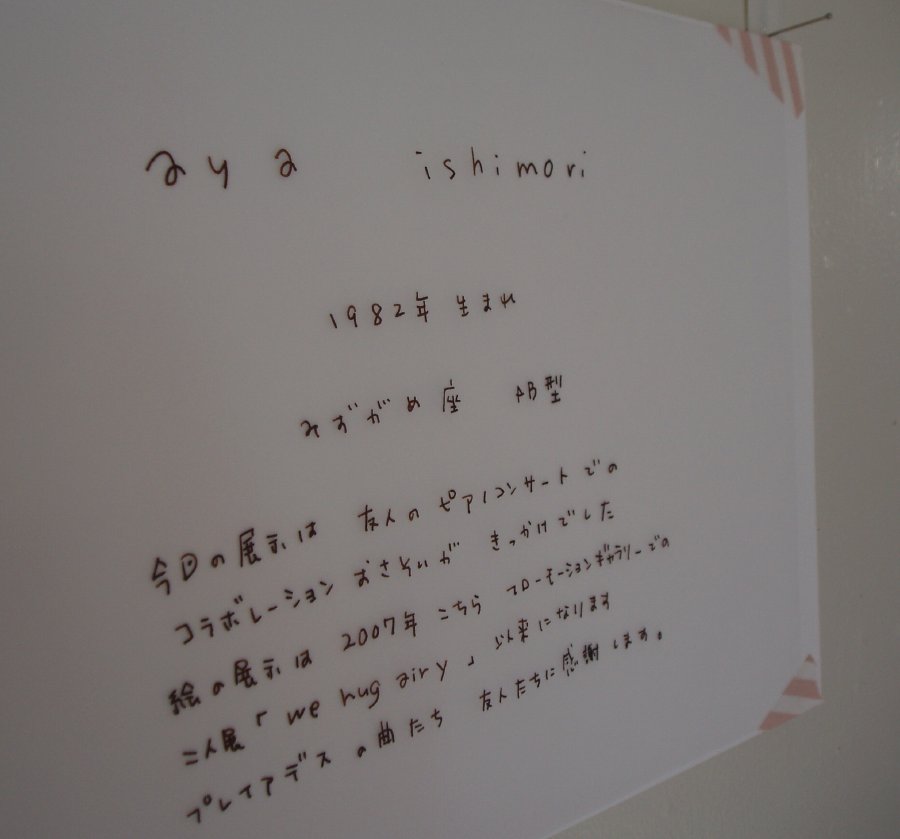 aya ishimori
1982年 生まれ
みずがめ座 AB型
今回の展示は 友人のピアノコンサートでの
コラボレーション おさそいが きっかけでした
絵の展示は 2007年 こちら スローモーションギャラリーでの
二人展「we hug airy」以来になります
プレイアデスの曲たち 友人たちに感謝します。